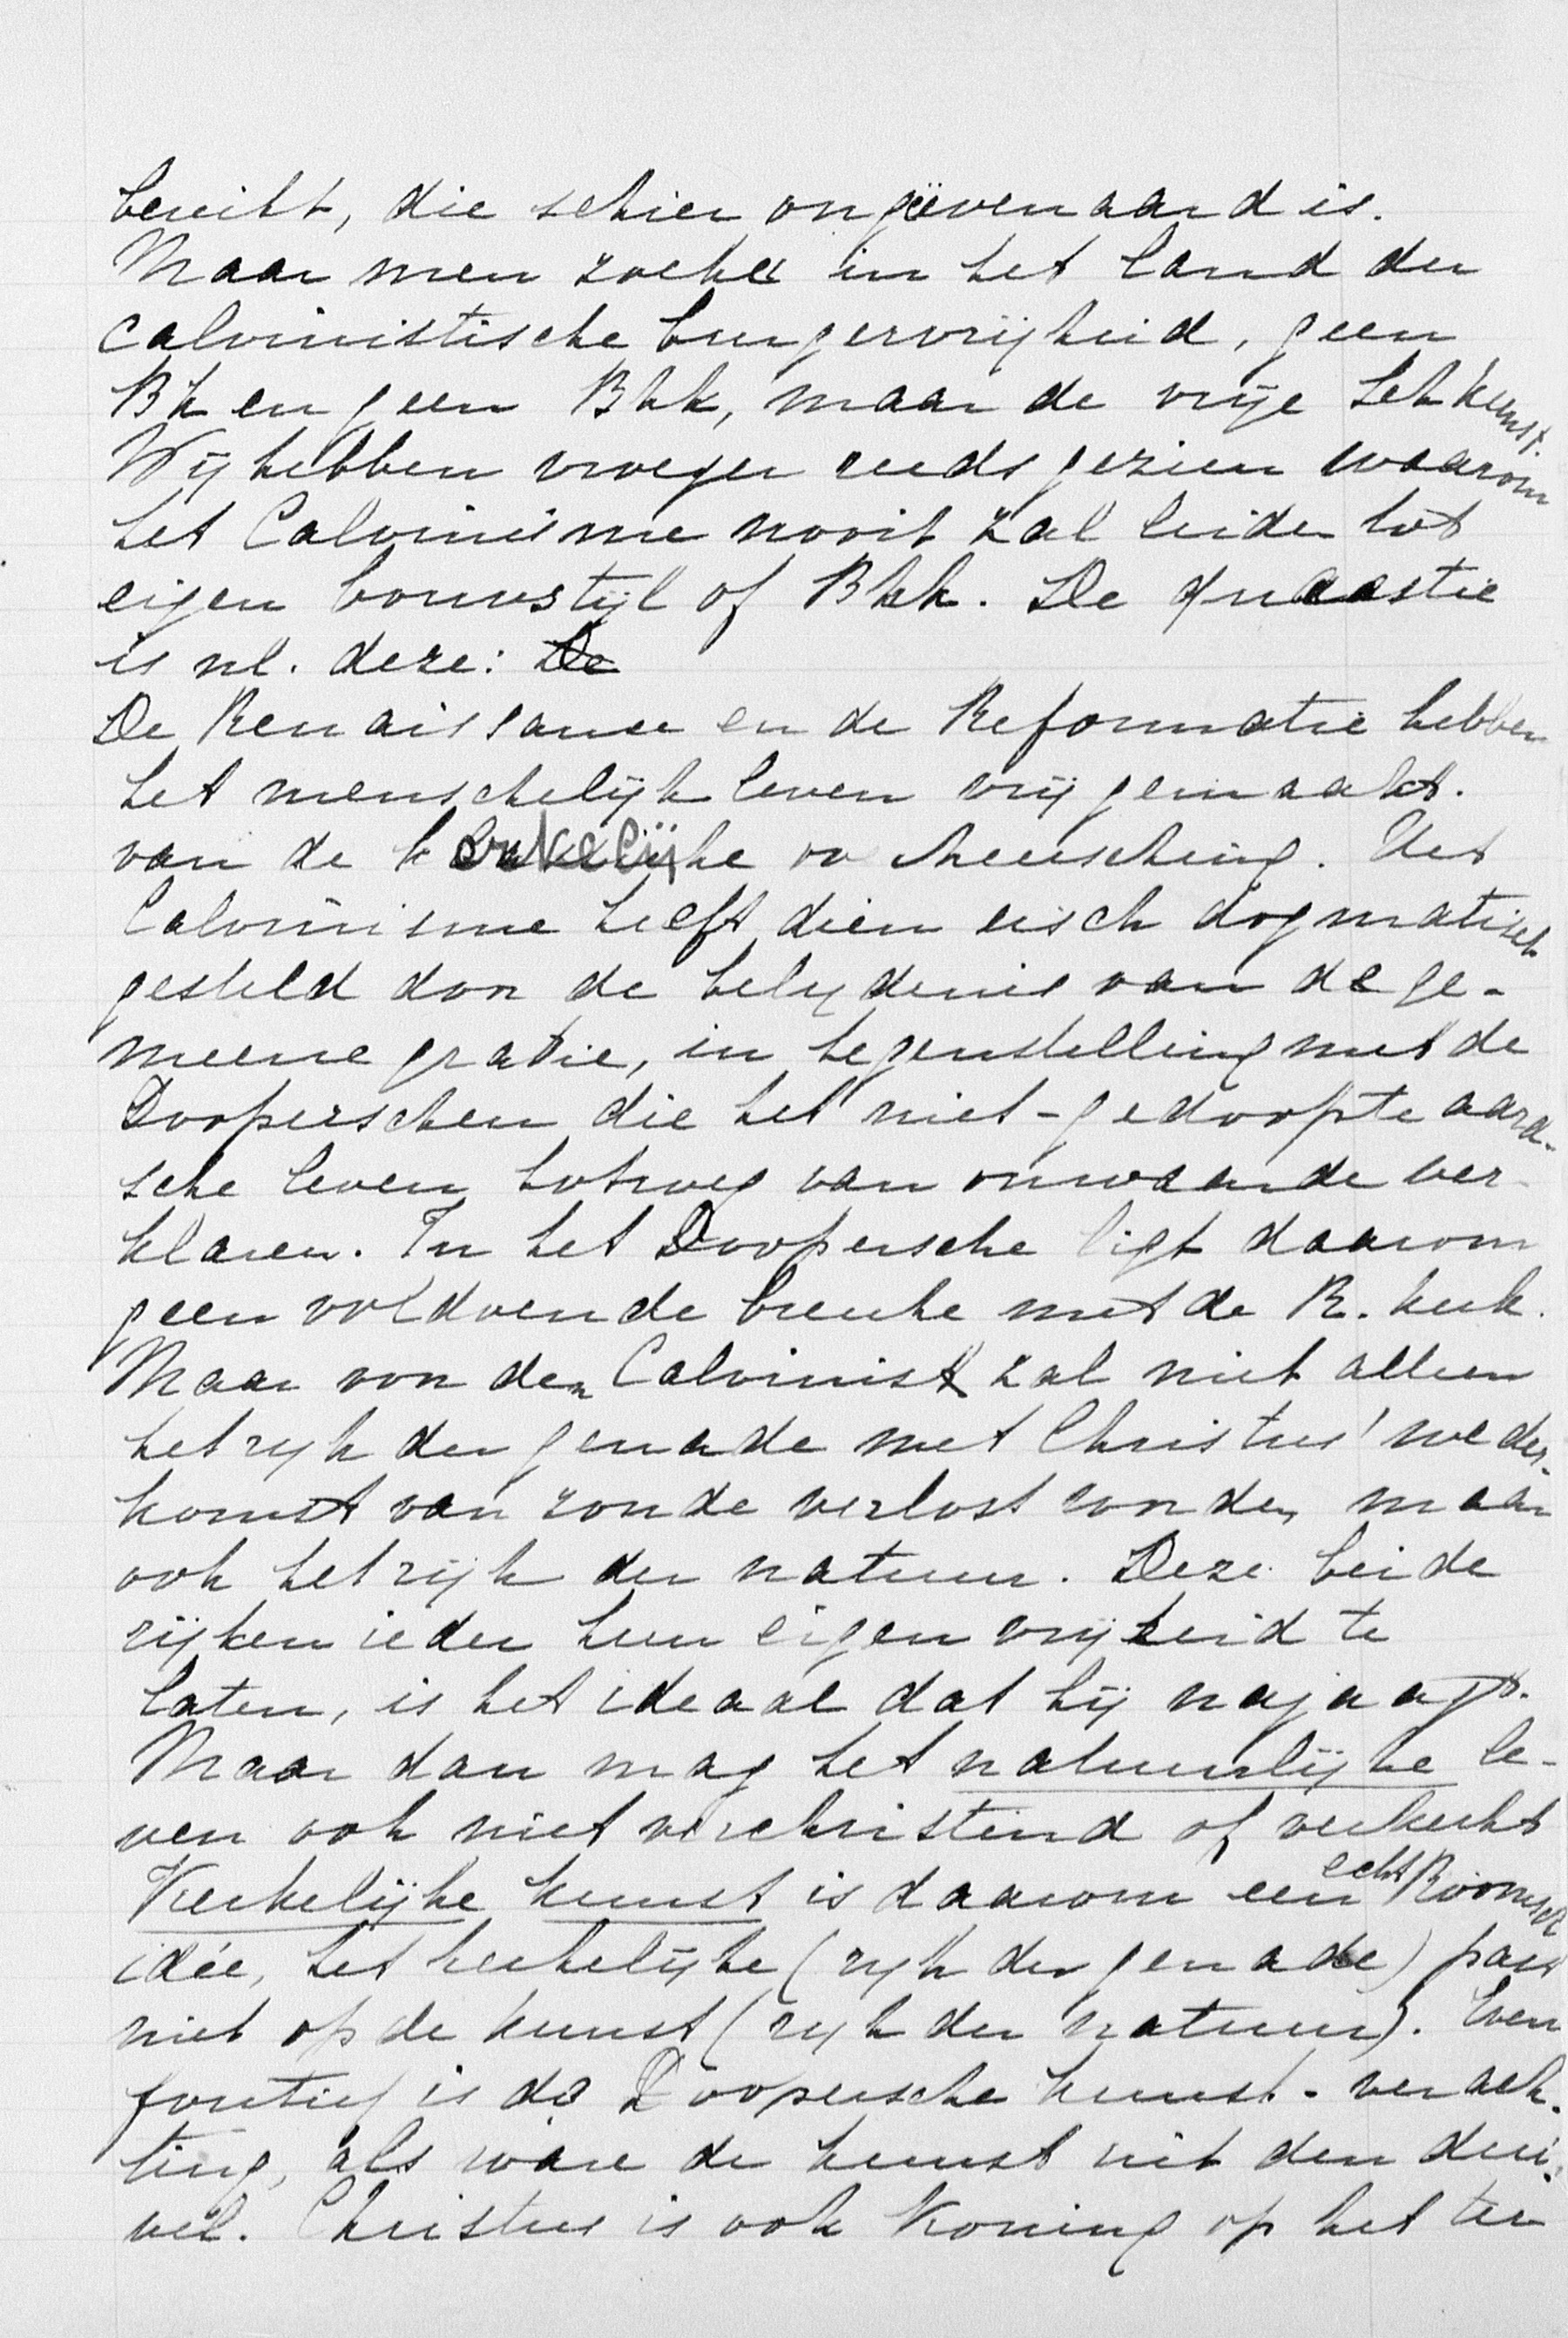 bereikt, die schier ongeëvenaard is.
Maar men zoeke in het land der
Calvinistische burgervrijheid, geen
Bk en geen Bhk, maar de vrije Schkunst.
Wij hebben vroeger reeds gezien waarom
het Calvinisme nooit zal leiden tot
eigen bouwstijl of Bhk. De
is nl. deze: De
De Renaissance en de Reformatie hebben
het menschelijk leven vrij gemaakt.
van de kerkelijke overheersching. Het
Calvinisme heeft dien eisch dogmatisch
gesteld door de belydenis van de ge-
meene gratie, in tegenstelling met de
Dooperschen die het niet-gedoopte aard-
sche leven botweg van onwaarde ver-
klaren. In het Doopersche ligt daarom
geen voldoende breuke met de R. kerk.
Maar voor den Calvinist zal niet alleen
het ryk der genade met Christus' weder-
komst van zonde verlost worden, maar
ook het rijk der natuur. Deze beide
rijken ieder hun eigen vrijheid te
laten, is het ideaal dat hij najaagt.
Maar dan mag het natuurlijke le-
ven ook niet verchristend of verkerkt
Kerkelijke kunst is daarom een echt Roomsch
idée, het kerkelijke (ryk der genade) past
niet op de kunst (ryk der natuur). Even
foutief is de Doopersche kunst-verach-
ting, als ware de kunst uit den dui-
vel. Christus is ook Koning op het ter